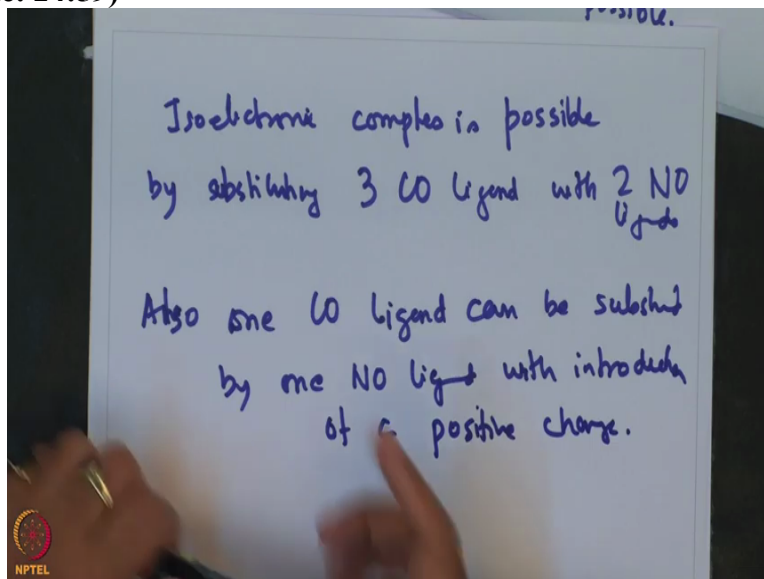 possible.
Isoelectronic complex is possible
by substituting 3 CO ligand with 2 NO
ligands
Also one CO ligand can be substitut
by one NO ligand with introduction
of a positive charge.
NPTEL